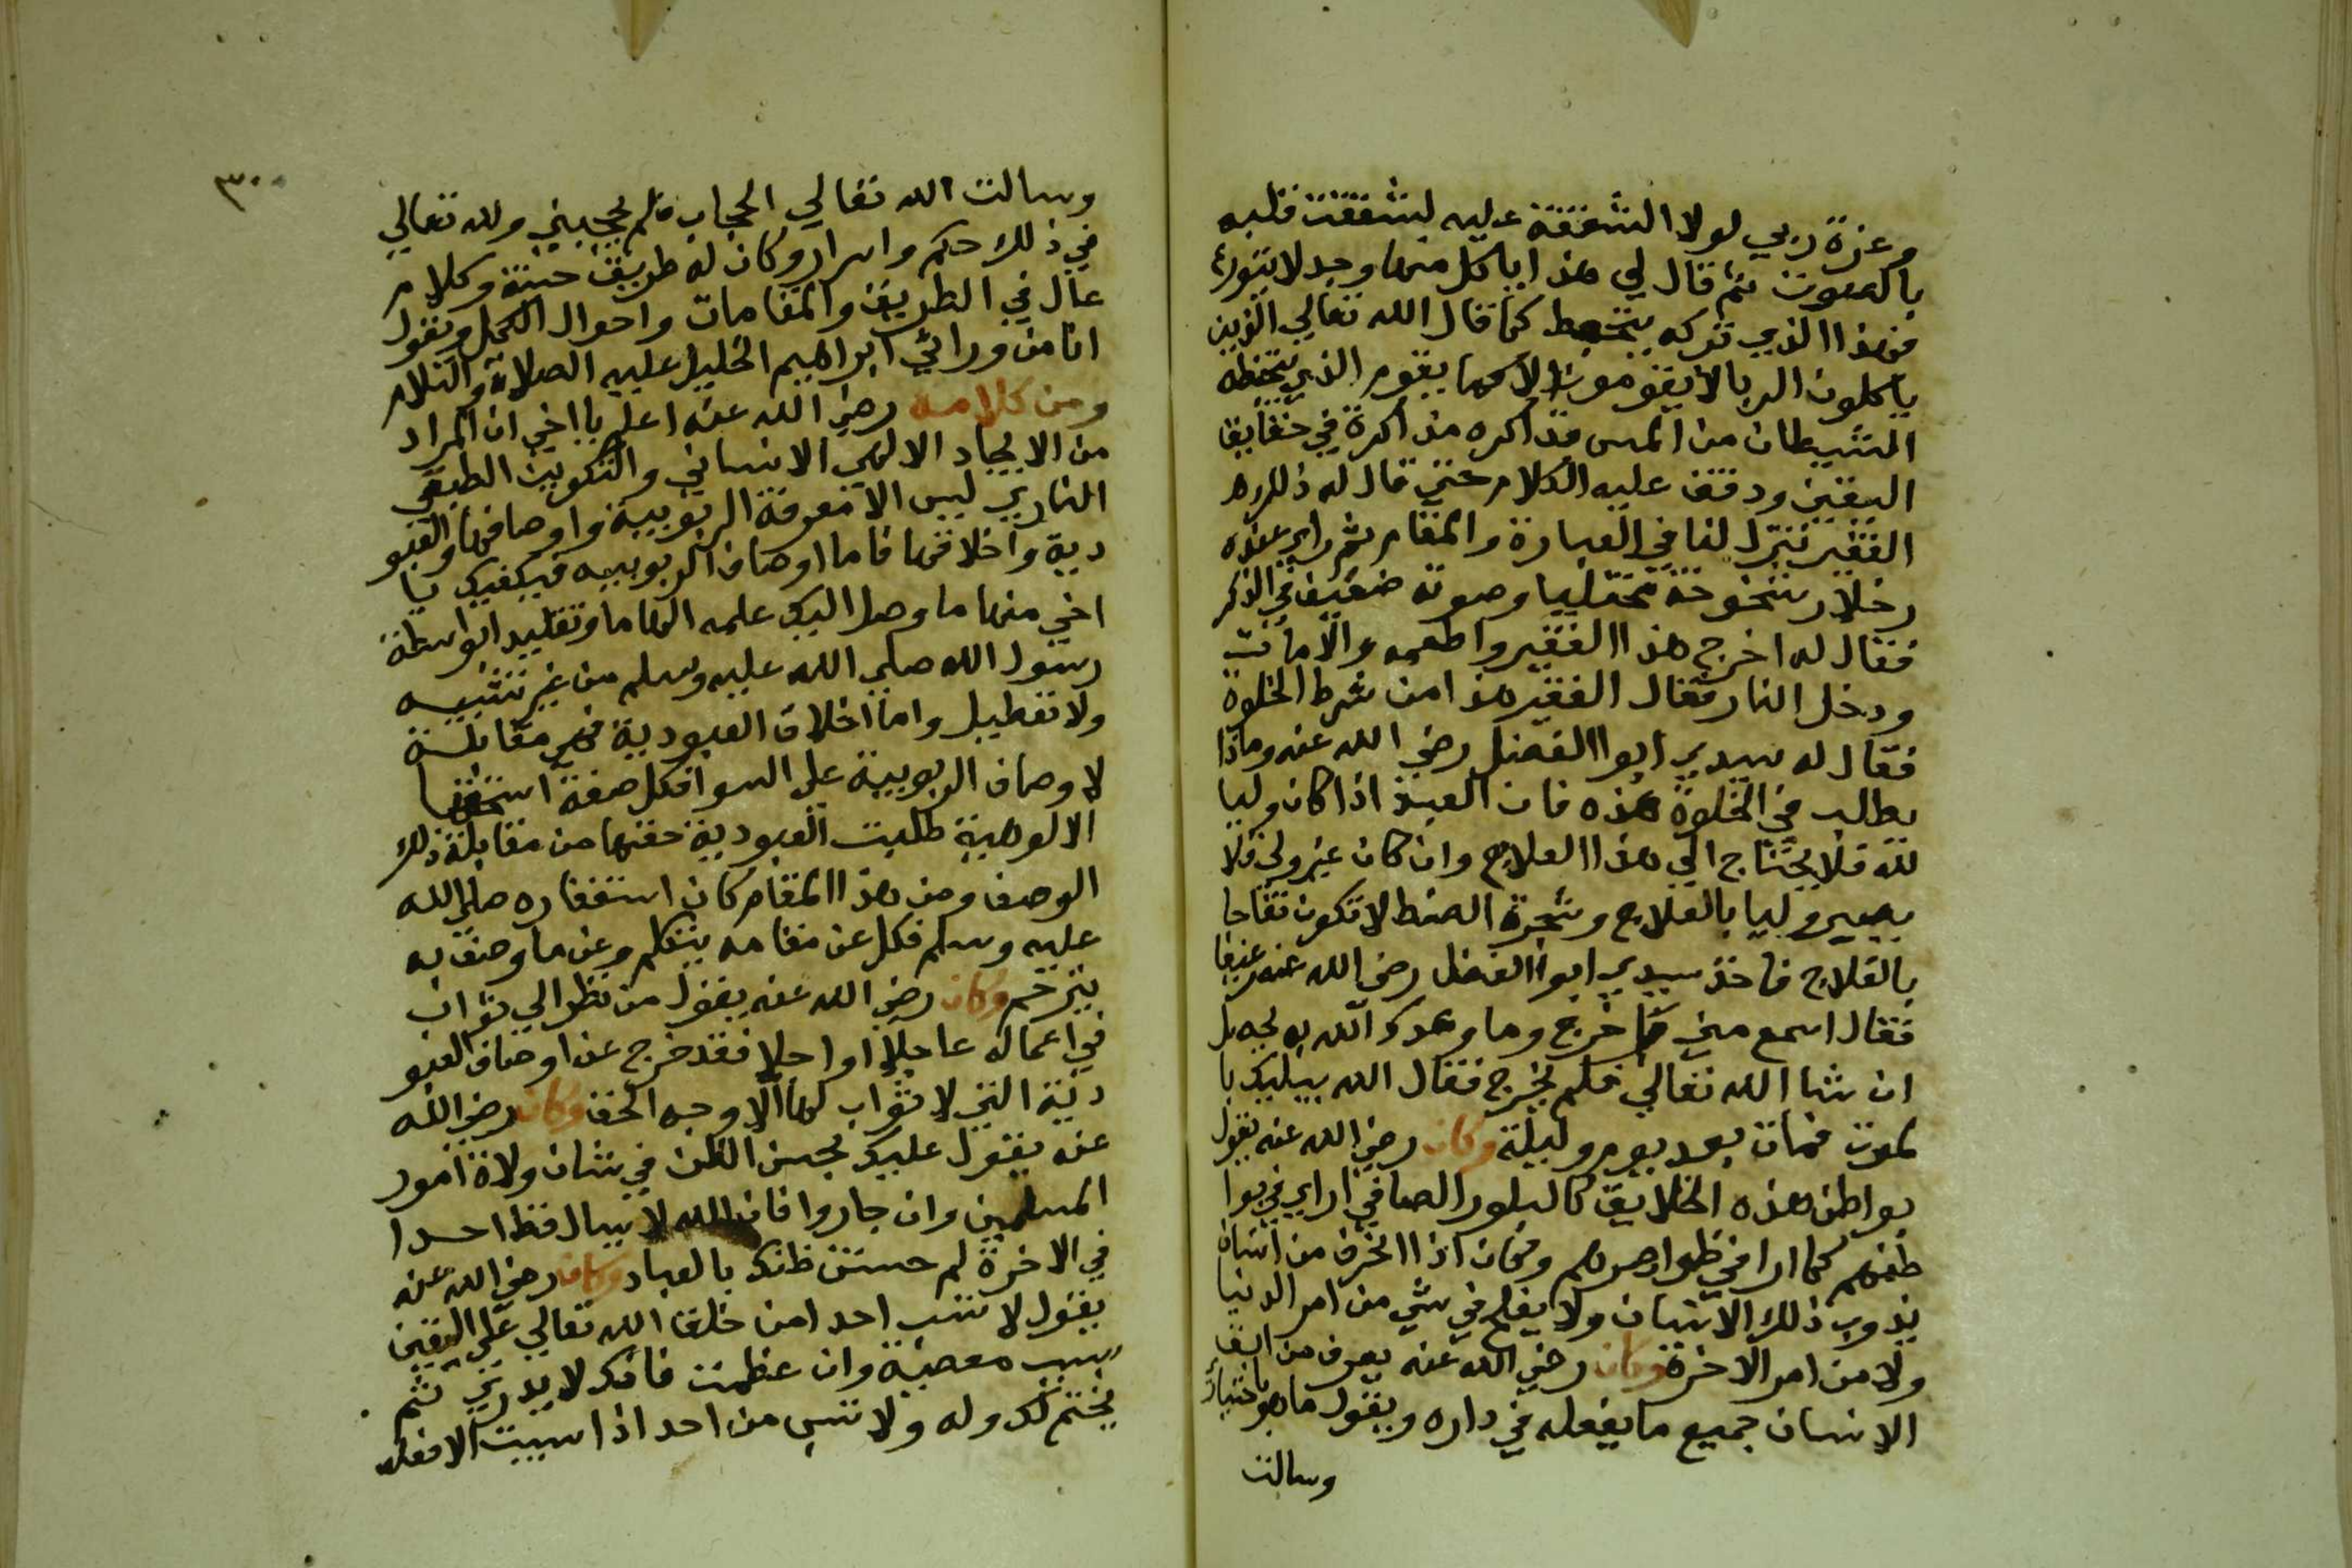 وعزة ربي لولا الشفقة عليه لشققت قلبه
بالصوت ثم قال لي هذا ياكل مهما وجد لا يتورع
فهذا الذي تركه يتخبط كما قال الله تعالي الذين
ياكلون الربا لا يقومون الا كما يقوم الذي يتخبطه
الشيطان من المس فذاكره مذاكرة في حقايق
اليقين ودقق عليه الكلام حتي قال له ذلك
الفقير تنزل لنا في العبارة والمقام ثم راي عنده
رجلا في خلوة مختليا وصوته ضعيف في الذكر
فقال له اخرج هذا الفقير واطعمه والا مات
ودخل النار فقال الفقير هذا من شرط الخلوة
فقال له سيدي ابو الفضل رضي الله عنه وماذا
يطلب في الخلوة هذه فان العبد اذا كان وليا
لله فلا يحتاج الي هذا العلاج وان كان غير ولي فلا
يصير وليا بالعلاج وشجرة السنط لا تكون تفاحا
بالعلاج فاخذ سيدي ابو الفضل رضي الله عنه رغيفا
فقال اسمع مني واخرج وما وعدك الله به يحصل
ان شا الله تعالي فلم يخرج فقال الله يبتليك با
لموت فمات بعد يوم وليلة وكان رضي الله عنه يقول
بواطن هذه الخلايق كالبلور الصافي اراي في بوا
طنهم كما ارا في ظواهرهم وكان اذا انحرف من انسان
يذوب ذلك الانسان ولا يفلح في شي من امر الدنيا
ولا من امر الاخرة وكان رضي الله عنه يعرف من انف
الانسان جميع ما يفعله في داره ويقول ما هو باختياري
وسالت
٣٠٠
وسالت الله تعالي الحجاب فلم يحجبني ولله تعالي
في ذلك حكم واسرار وكان له طريق حسنة وكلام
عال في الطريق والمقامات واحوال الكمل ويقول
انا من ورائي ابراهيم الخليل عليه الصلاة والسلام
ومن كلامه رضي الله عنه اعلم يا اخي ان المراد
من الايجاد الالهي الانساني والتكوين الطبيعي
الناري ليس الا معرفة الربوبية واوصافها والعبو
دية واخلاقها فاما اوصاف الربوبيه فيكفيك يا
اخي منها ما وصل اليك علمه الهاما وتقليدا بواسطة
رسول الله صلي الله عليه وسلم من غير تشبيه
ولا تعطيل واما اخلاق العبودية فهي مقابلة
لاوصاف الربوبية علي السوا فكل صفة استحقتها
الالوهية طلبت العبودية حقها من مقابلة ذلك
الوصف ومن هذا المقام كان استغفاره صلي الله
عليه وسلم فكل عن مقامه يتكلم وعن ما وصف به
يترجم وكان رضي الله عنه يقول من نظر الي ثواب
في اعماله عاجلا او اجلا فقد خرج عن اوصاف العبو
دية التي لا ثواب لها الا وجه الحق وكان رضي الله
عنه يقول عليك بحسن الظن في شان ولاة امور
المسلمين وان جاروا فان الله لا يسال قط احدا
في الاخرة لم حسنت ظنك بالعباد وكان رضي الله عنه
يقول لا تسب احدا من خلق الله تعالي علي اليقين
بسبب معصية وان عظمت فانك لا تدري ثم
يختم لك وله ولا تسب من احد اذا سببت الا فعله